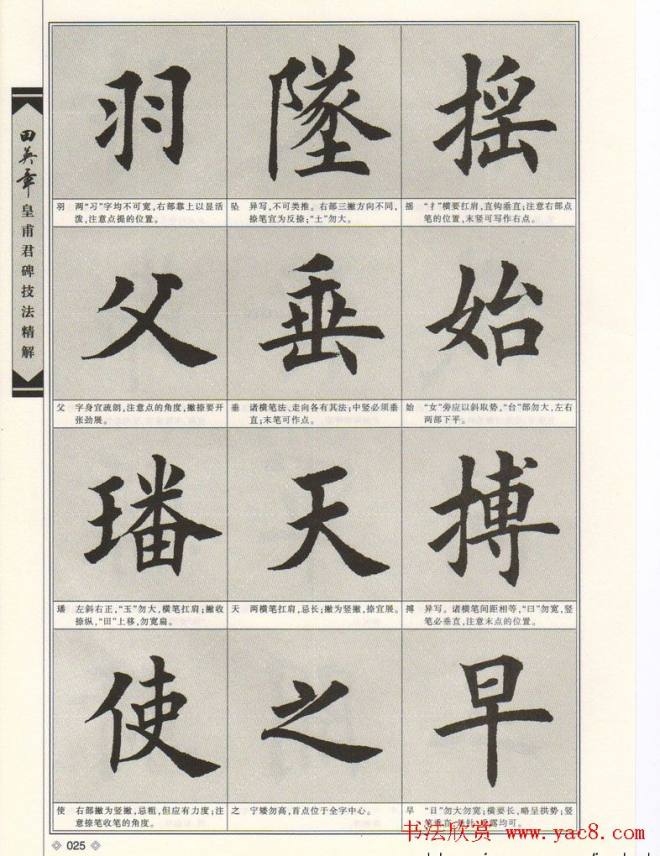 田英章
皇甫君碑技法精解
羽 墜 摇
羽 两“习”字均不可宽,右部靠上以显活
泼,注意点提的位置。
坠 异写,不可类推。右部三撇方向不同,
捺笔宜为反捺;“土”勿大。
摇 “扌”横要扛肩,直钩垂直;注意右部点
笔的位置,末竖可写作右点。
父 垂 始
父 字身宜疏朗,注意点的角度,撇捺要开
张劲展。
垂 诸横笔法、走向各有其法;中竖必须垂
直;末笔可作点。
始 “女”旁应以斜取势,“台”部勿大,左右
两部下平。
璠 天 搏
璠 左斜右正,“玉”勿大,横笔扛肩;撇收
捺纵,“田”上移,勿宽扁。
天 两横笔扛肩,忌长;撇为竖撇,捺宜展。
搏 异写。诸横笔间距相等,“曰”勿宽,竖
笔必垂直,注意末点的位置。
使 之 早
使 右部撇为竖撇,忌粗,但应有力度;注
意捺笔收笔的角度。
之 字矮勿高,首点位于全字中心。
早 “日”勿大勿宽;横要长,略呈拱势;竖
025
书法欣赏 www.yac8.com